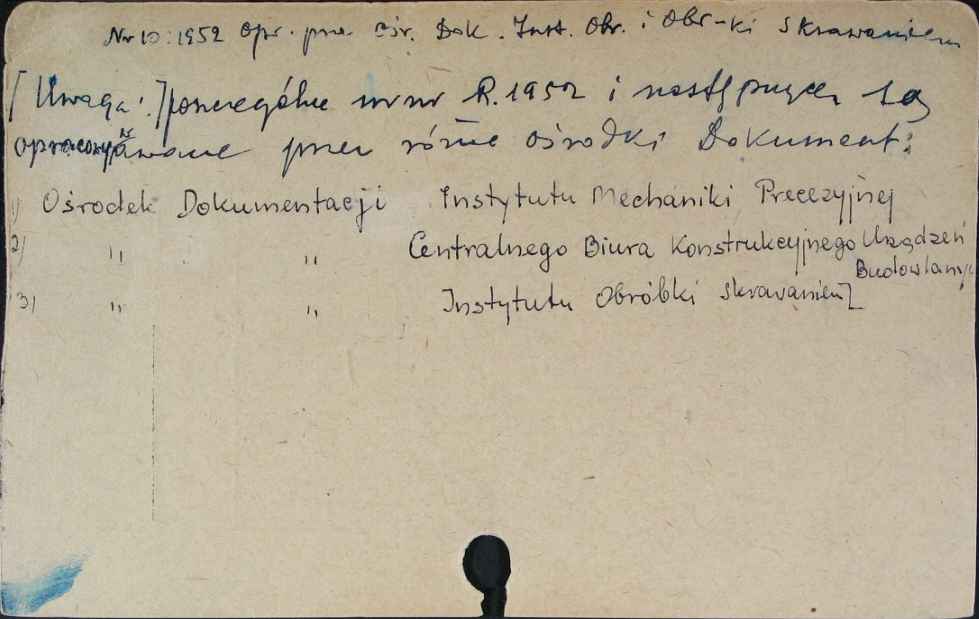 Nr 10:1952 Opr. prze. Ośr. Dok. Inst. Obr. i Obr-ki Skrawaniem
[Uwaga:] poszczególne nrnr R.1952 i następnych są
opracowywane przez różne ośrodki Dokument:
1) Ośrodek Dokumentacji Instytutu Mechaniki Precezyjnej
2) " " Centralnego Biura Konstrukcyjnego Urządzeń
Budowlanych
3) " " Instytutu Obróbki Skrawaniem]